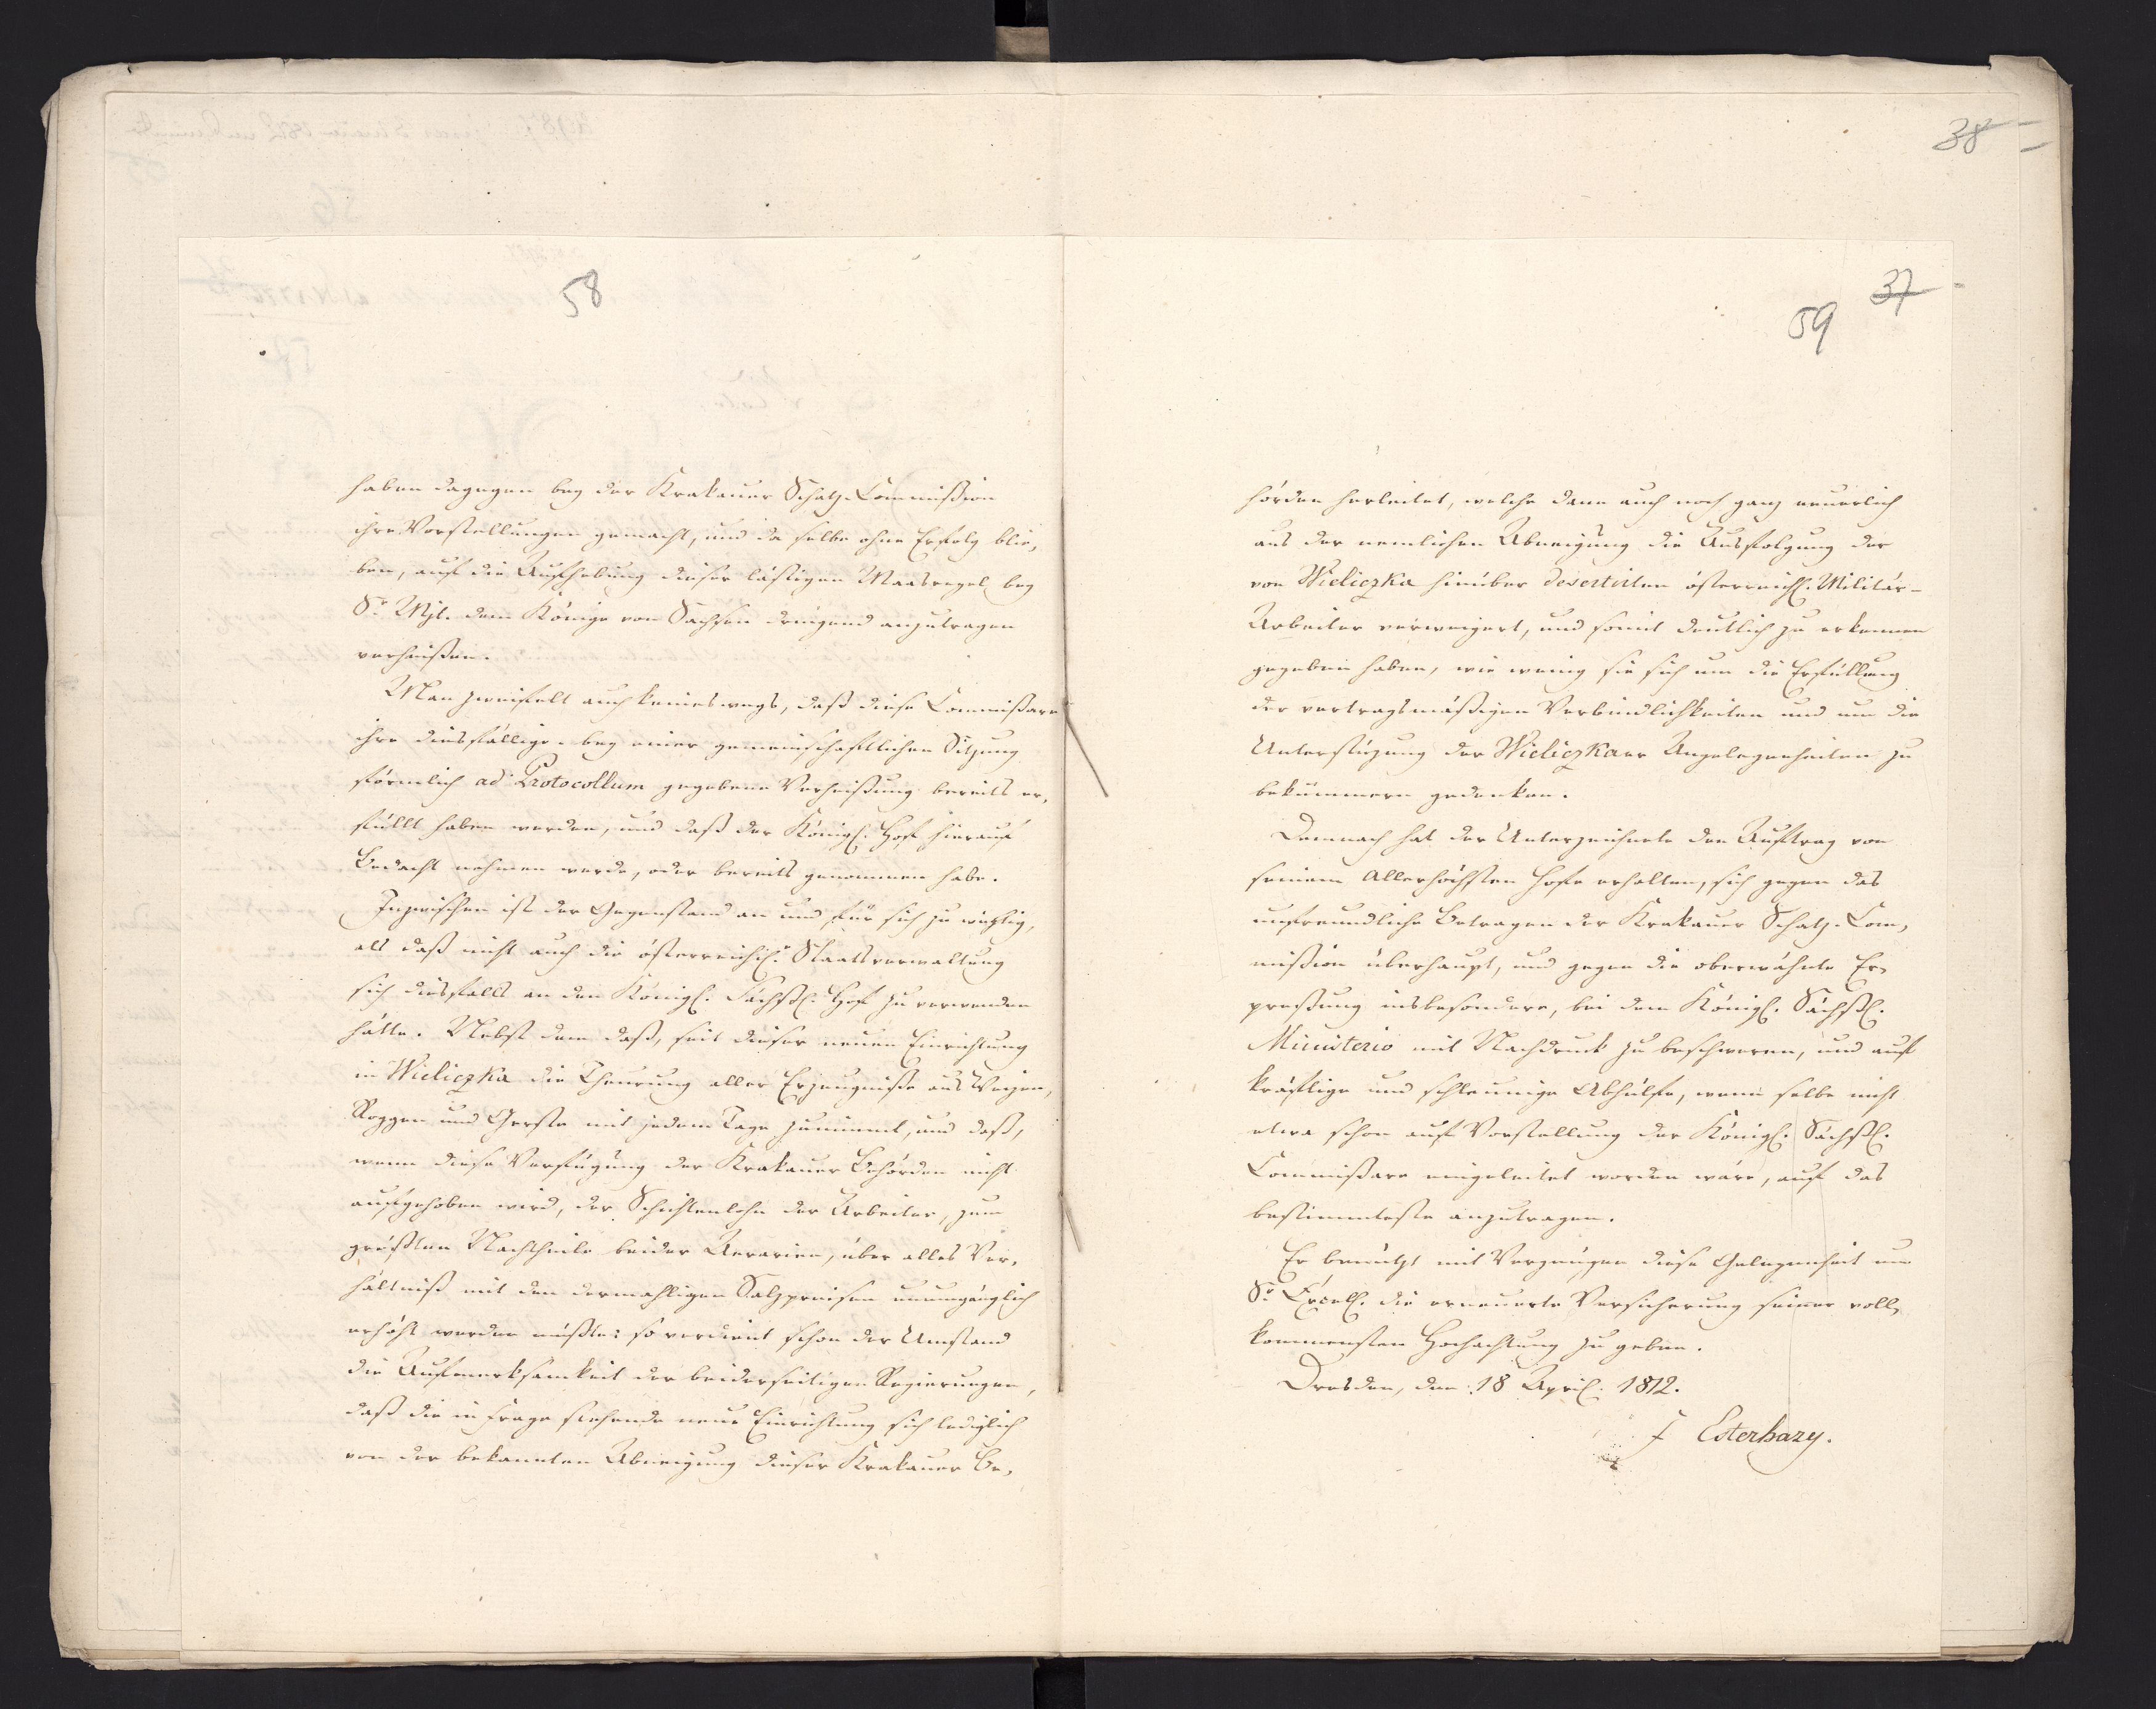 58
haben dagegen bey der Krakauer Schatz-Commißion
ihre Vorstellungen gemacht, und da selbe ohne Erfolg blie-
ben, auf die Aufhebung dieser lästigen Maasregel bey
Sr Mjt. dem Könige von Sachsen dringend anzutragen
verheißen.
Man zweifelt auch keineswegs, daß diese Commißare
ihre diesfällige bey einer gemeinschaftlichen Sitzung
förmlich ad Protocollum gegebene Verheißung bereits er-
füllt haben werden, und daß der Königl. Hof hierauf
Bedacht nehmen werde, oder bereits genommen habe.
Inzwischen ist der Gegenstand an und für sich zu wichtig,
als daß nicht auch die österreichsche Staatsverwaltung
sich diesfalls an den Königl. Sächßl. Hof zu verwenden
hätte. Nebst dem daß, seit dieser neuen Einrichtung
in Wieliczka die Theurung aller Erzeugniße aus Weizen,
Roggen und Gerste mit jedem Tage zunimmt, und daß,
wenn diese Verfügung der Krakauer Behörden nicht
aufgehoben wird, der Schichtenlohn der Arbeiter, zum
größten Nachtheile beider Aerarien, über alles Ver-
hältniß mit den dermahligen Salzpreisen unumgänglich
erhöht werden müßte: so verdient schon der Umstand
die Aufmerksamkeit der beiderseitigen Regierungen,
daß die in Frage stehende neue Einrichtung sich lediglich
von der bekannten Abneigung dieser Krakauer Be-
38
37
59
hörden herleitet, welche dann auch noch ganz neuerlich
aus der nemlichen Abneigung die Ausfolgung der
von Wieliczka hinüber desertirten österreichl. Militär-
Arbeiter verweigert, und somit deutlich zu erkennen
gegeben haben, wie wenig sie sich um die Erfüllung
der vertragsmäßigen Verbindlichkeiten und um die
Unterstüzung der Wieliczkaer Angelegenheiten zu
bekümmern gedenken.
Demnach hat der Unterzeichnete den Auftrag von
seinem Allerhöchsten Hofe erhalten, sich gegen das
unfreundliche Betragen der Krakauer Schatz-Com-
mißion überhaupt, und gegen die oberwähnte Er-
preßung insbesondere, bei dem Königl. Sächßl.
Ministerio mit Nachdruck zu beschweren, und auf
kräftige und schleunige Abhülfe, wenn selbe nicht
etwa schon auf Vorstellung der Königl. Sächßl.
Commißare eingeleitet worden wäre, auf das
bestimmteste anzutragen.
Er benützt mit Vergnügen diese Gelegenheit um
Sr Excell. die erneuerte Versicherung seiner voll-
kommensten Hochachtung zu geben.
Dresden, den 18 April. 1812.
Esterhazy.